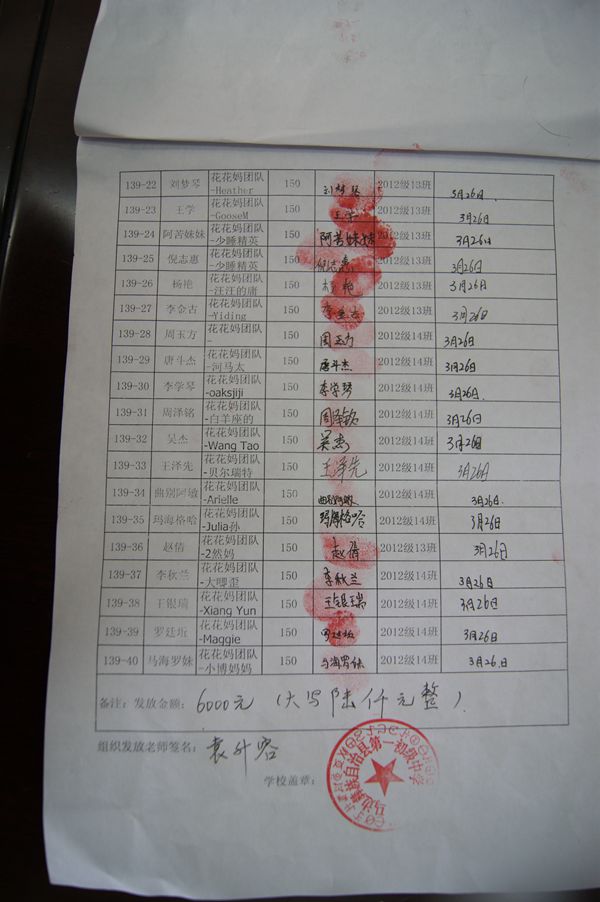 139-22 刘梦琴 花花妈团队-Heather 150 刘梦琴 2012级13班 3月26日
139-23 王学 花花妈团队-GooseM 150 王学 2012级13班 3月26日
139-24 阿苦妹妹 花花妈团队-少睡精英 150 阿苦妹妹 2012级13班 3月26日
139-25 倪志惠 花花妈团队-少睡精英 150 倪志惠 2012级13班 3月26日
139-26 杨艳 花花妈团队-汪汪的唐 150 杨艳 2012级13班 3月26日
139-27 李金古 花花妈团队-Yiding 150 李金古 2012级13班 3月26日
139-28 周玉方 花花妈团队- 150 周玉方 2012级14班 3月26日
139-29 唐斗杰 花花妈团队-河马太 150 唐斗杰 2012级14班 3月26日
139-30 李学琴 花花妈团队-oaksjiji 150 李学琴 2012级14班 3月26日
139-31 周泽铭 花花妈团队-白羊座的 150 2012级14班 3月26日
139-32 吴杰 花花妈团队-Wang Tao 150 吴杰 2012级14班 3月26日
139-33 王泽先 花花妈团队-贝尔瑞特 150 王泽先 2012级14班 3月26日
139-34 曲别阿敏 花花妈团队-Arielle 150 曲别阿敏 2012级14班 3月26日
139-35 玛海格哈 花花妈团队-Julia孙 150 玛海格哈 2012级14班 3月26日
139-36 赵倩 花花妈团队-2然妈 150 赵倩 2012级13班 3月26日
139-37 李秋兰 花花妈团队-大唧歪 150 李秋兰 2012级14班 3月26日
139-38 王银瑞 花花妈团队-Xiang Yun 150 王银瑞 2012级14班 3月26日
139-39 罗廷珩 花花妈团队-Maggie 150 2012级14班 3月26日
139-40 马海罗妹 花花妈团队-小博妈妈 150 马海罗妹 2012级14班 3月26日
备注：发放金额： 6000元（大写陆仟元整）
组织发放老师签名：
学校盖章：
族自治县第一初级中学